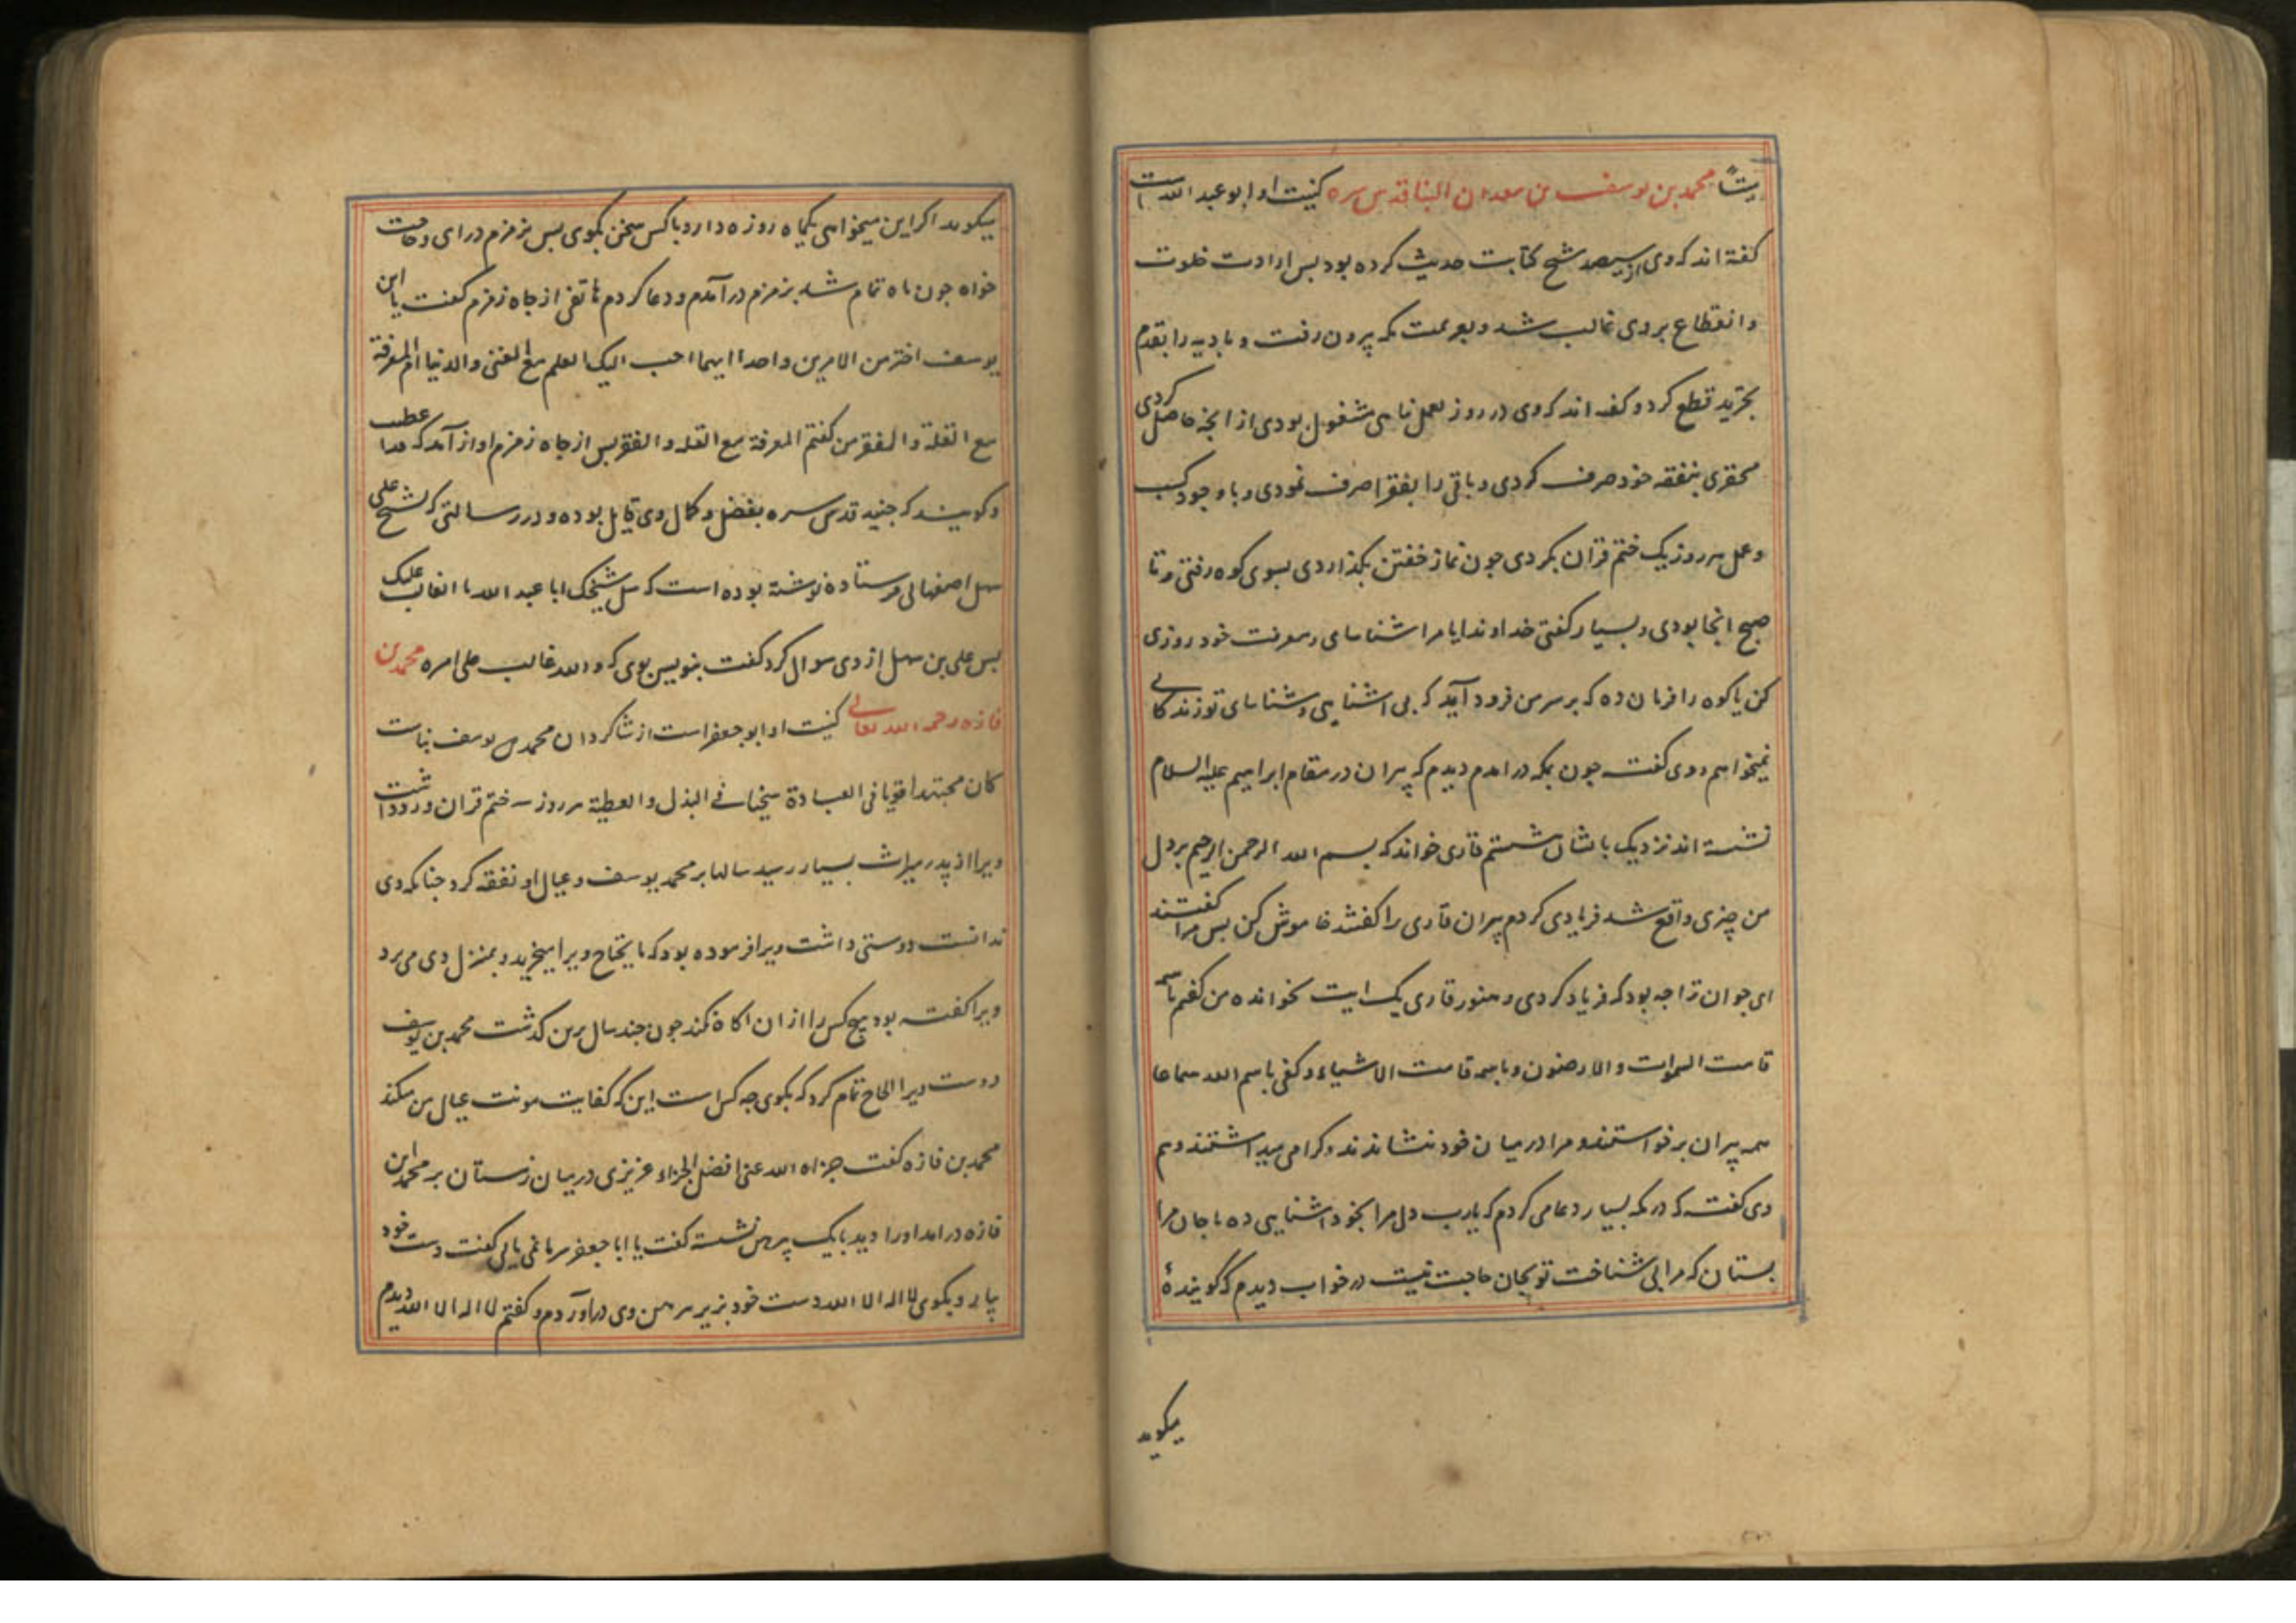 یتً محمد بن یوسف بن معدان البنا قدس سره کنیت او ابو عبد الله است
کفته اند که وی از سیصد شیخ کتابت حدیث کرده بود بس ارادت خلوت
وانقطاع بروی غالب شد و بعزیمت مکه بیرون رفت و بادیه را بقدم
تجرید قطع کرد و کفته اند که وی در روز بعمل بنایی مشغول بودی از آنجه حاصل کردی
محقری بنفقه خود صرف کردی و باقی را بفقرا صرف نمودی و با وجود کسب
و عمل هر روز یک ختم قران بکردی جون نماز خفتن بکذاردی بسوی کوه رفتی و تا
صبح انجا بودی و بسیار کفتی خداوندا یا مرا شناسای معرفت خود روزی
کن یا کوه را فرمان ده که بر سر من فرود آید که بی اشنایی و شناسای تو زندکانی
نمیخواهم و وی کفت جون بمکه درامدم دیدم که پیران در مقام ابراهیم علیه السلام
نشسته اند نزدیک بایشان نشستم قاری خواند که بسم الله الرحمن الرحیم بر دل
من چیزی واقع شد فریادی کردم پیران قاری را کفتند خاموش کن بس مرا کفتند
ای جوان ترا جه بود که فریاد کردی و هنوز قاری یک ایت نخوانده من کفتم باسمه
قامت السموات والارضون و باسمه قامت الاشیاء و کفی باسم الله سماعا
همه پیران برخواستند و مرا در میان خود بنشاندند و کرامی میداشتند و هم
وی کفت که در مکه بسیار دعا می کردم که یارب دل مرا بخود اشنایی ده یا جان مرا
بستان که مرا بی شناخت تو بجان حاجت نیست در خواب دیدم که کویندهٔ
میکوید
میکوید اکر این میخواهی یکماه روزه دار و با کس سخن مکوی بس بزمزم درای و حاجت
خواه جون ماه تمام شد بزمزم درآمدم و دعا کردم هاتفی از جاه زمزم کفت یا ابن
یوسف اختر من الامرین واحدا ایهما احب الیک العلم مع الغنی والدنیا ام المعرفة
مع القلة والفقر من کفتم المعرفة مع القلة والفقر بس از جاه زمزم اواز آمد که قد اعطیت
و کویند که جنید قدس سره بفضل و کمال وی قایل بوده و در رسالتی که بشیخ علی
سهل اصفهانی فرستاده نوشته بوده است که سل شیخک ابا عبد الله ما الغالب علیک
بس علی بن سهل از وی سوال کرد کفت بنویس بوی که والله غالب علی امره محمد بن
فاذه رحمه الله تعالی کنیت او ابو جعفر است از شاکردان محمد بن یوسف بناست
کان مجتهدا قویا فی العبادة سخیا فی البذل والعطیة هر روز سه ختم قران ورد داشت
ویرا از پدر میراث بسیار رسید سالها بر محمد یوسف و عیال او نفقه کرد جنانکه وی
ندانست دوستی داشت ویرا فرموده بود که مایحتاج ویرا میخرید و بمنزل وی می برد
ویرا کفته بود هیج کس را از ان اکاه نکند جون جند سال برین کذشت محمد بن یوسف
دوست ویرا الحاح تمام کرد که بکوی جه کس است این که کفایت مونت عیال من میکند
محمد بن فاذه کفت جزاه الله عنی افضل الجزاء عزیزی در میان زمستان بر محمد ابن
فاذه درامد او را دید با یک پیرهن نشسته کفت یا ابا جعفر سرما نمی یابی کفت دست خود
بیار و بکوی لا اله الا الله دست خود بزیر پیرهن وی درآوردم و کفتم لا اله الا الله دیدم